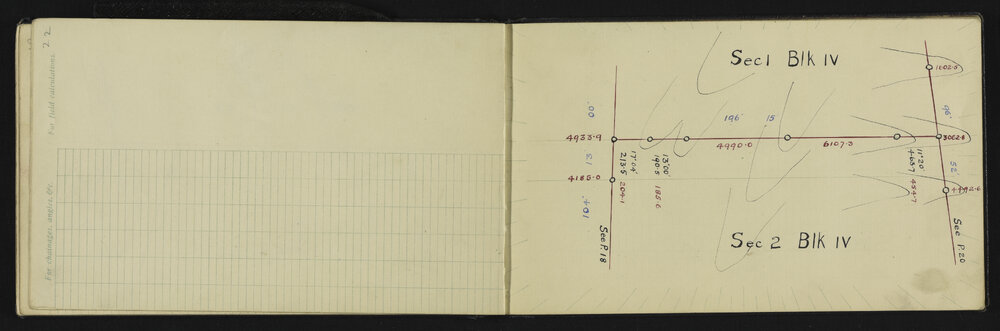 22
For field calculations.
For chainages, angles, &c.
Sec 1 Blk IV
1602.5
96°
00'
196° 15'
4933.9
3062.8
4990.0
6107.3
13
17°04'
213.5
204.1
13°00'
190.5
185.6
11°20'
463.7
454.7
52'
4185.0
4492.6
194°
Sec 2 Blk IV
See P.18
See P.20